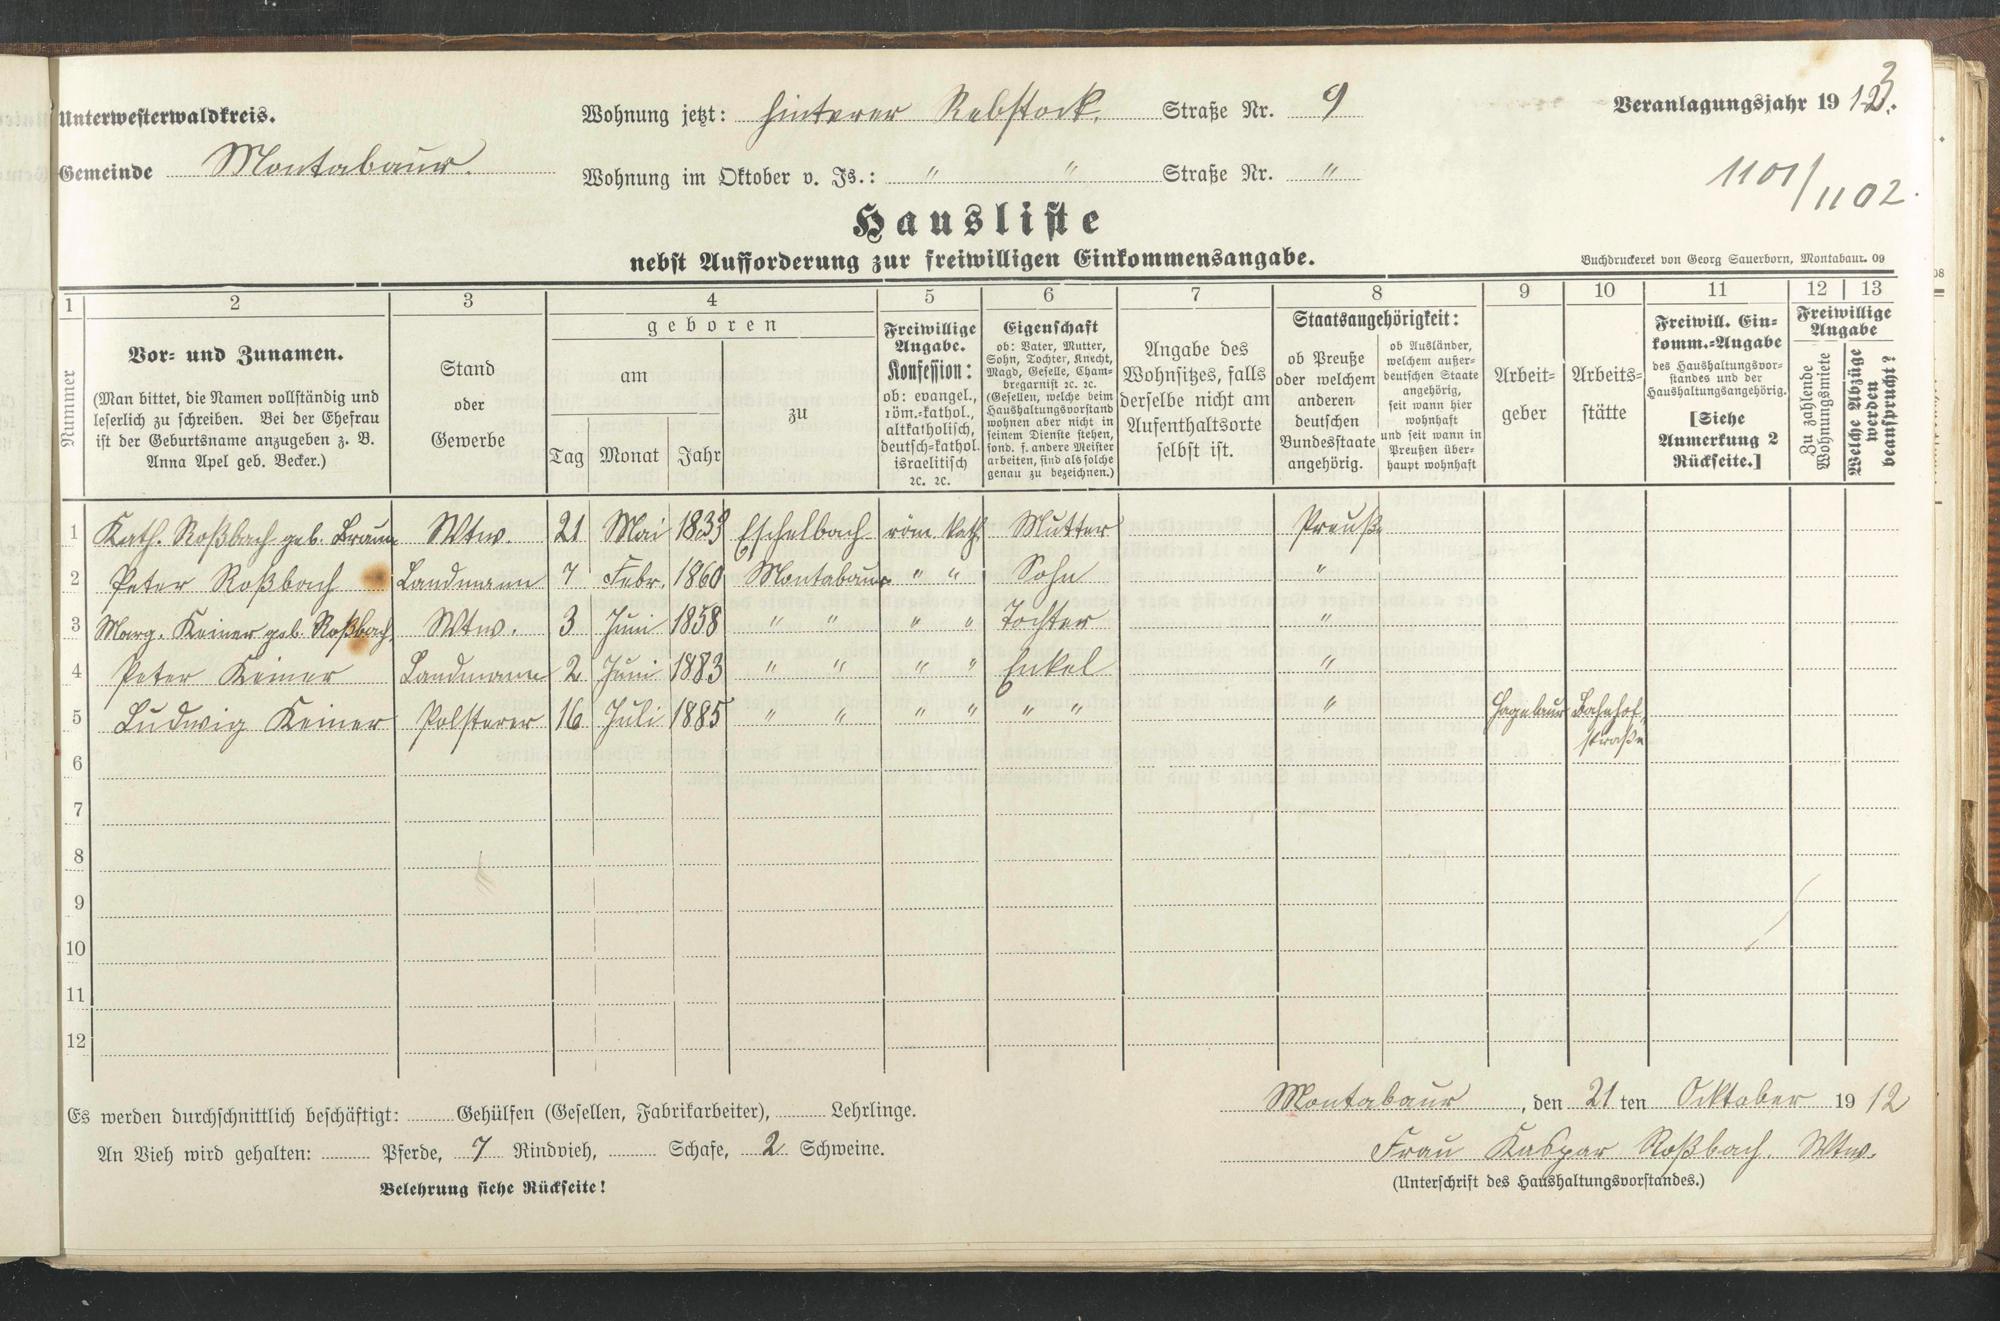 Unterwesterwaldkreis.
Wohnung jetzt: hinterer Rebstock. Straße Nr. 9
Veranlagungsjahr 1913.
Gemeinde Montabaur.
Wohnung im Oktober v. Js.: " " Straße Nr. "
1101/1102
Hausliste
nebst Aufforderung zur freiwilligen Einkommensangabe.
Buchdruckerei von Georg Sauerborn, Montabaur. 09
1 2 3 4 5 6 7 8 9 10 11 12 13
Nummer
Vor- und Zunamen.
(Man bittet, die Namen vollständig und
leserlich zu schreiben. Bei der Ehefrau
ist der Geburtsname anzugeben z. B.
Anna Apel geb. Becker.)
Stand
oder
Gewerbe
geboren
am
Tag Monat Jahr
zu
Freiwillige
Angabe.
Konfession:
ob: evangel.,
röm.-kathol.,
altkatholisch,
deutsch-kathol.
israelitisch
ꝛc. ꝛc.
Eigenschaft
ob: Vater, Mutter,
Sohn, Tochter, Knecht,
Magd, Geselle, Cham-
bregarnist ꝛc. ꝛc.
(Gesellen, welche beim
Haushaltungsvorstand
wohnen aber nicht in
seinem Dienste stehen,
sond. f. andere Meister
arbeiten, sind als solche
genau zu bezeichnen.)
Angabe des
Wohnsitzes, falls
derselbe nicht am
Aufenthaltsorte
selbst ist.
Staatsangehörigkeit:
ob Preuße
oder welchem
anderen
deutschen
Bundesstaate
angehörig.
ob Ausländer,
welchem außer-
deutschen Staate
angehörig,
seit wann hier
wohnhaft
und seit wann in
Preußen über-
haupt wohnhaft
Arbeit-
geber
Arbeits-
stätte
Freiwill. Ein-
komm.-Angabe
des Haushaltungsvor-
standes und der
Haushaltungsangehörig.
[Siehe
Anmerkung 2
Rückseite.]
Freiwillige
Angabe
Zu zahlende
Wohnungsmiete
Welche Abzüge
werden
beansprucht?
1 Kath. Roßbach geb. Braun Wtw. 21 Mai 1833 Eschelbach röm. kath. Mutter Preuße
2 Peter Roßbach Landmann 7 Febr. 1860 Montabaur " " Sohn "
3 Marg. Keiner geb. Roßbach Wtw. 3 Juni 1858 " " " " Tochter "
4 Peter Keiner Landmann 2 Juni 1883 " " " " Enkel "
5 Ludwig Keiner Polsterer 16 Juli 1885 " " " " " " " Bahnhof-
straße
6
7
8
9
10
11
12
Es werden durchschnittlich beschäftigt: Gehülfen (Gesellen, Fabrikarbeiter), Lehrlinge.
An Vieh wird gehalten: Pferde, 7 Rindvieh, Schafe, 2 Schweine.
Belehrung siehe Rückseite!
Montabaur, den 21ten Ocktober 1912
Frau Kaspar Roßbach. Wtw.
(Unterschrift des Haushaltungsvorstandes.)